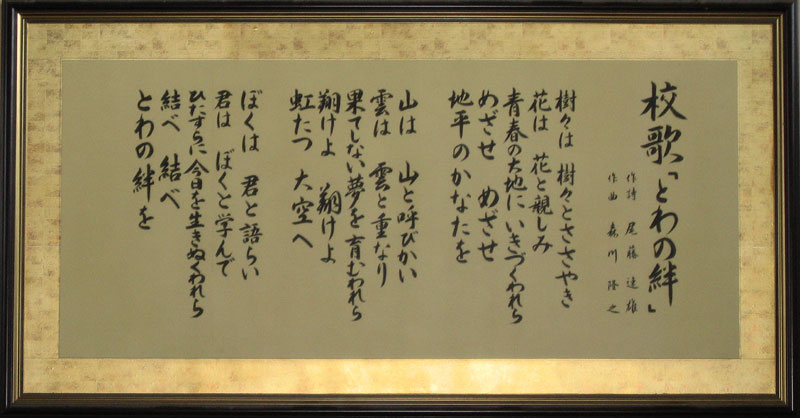 校歌「とわの絆」
作詩 尾藤達雄
作曲 森川隆之
樹々は 樹々とささやき
花は 花と親しみ
青春の大地に いきづくわれら
めざせ めざせ
地平のかなたを
山は 山と呼びかい
雲は 雲と重なり
果てしない夢を 育むわれら
翔けよ 翔けよ
虹たつ 大空へ
ぼくは 君と語らい
君は ぼくと学んで
ひたすらに 今日を生きぬくわれら
結べ 結べ
とわの絆を